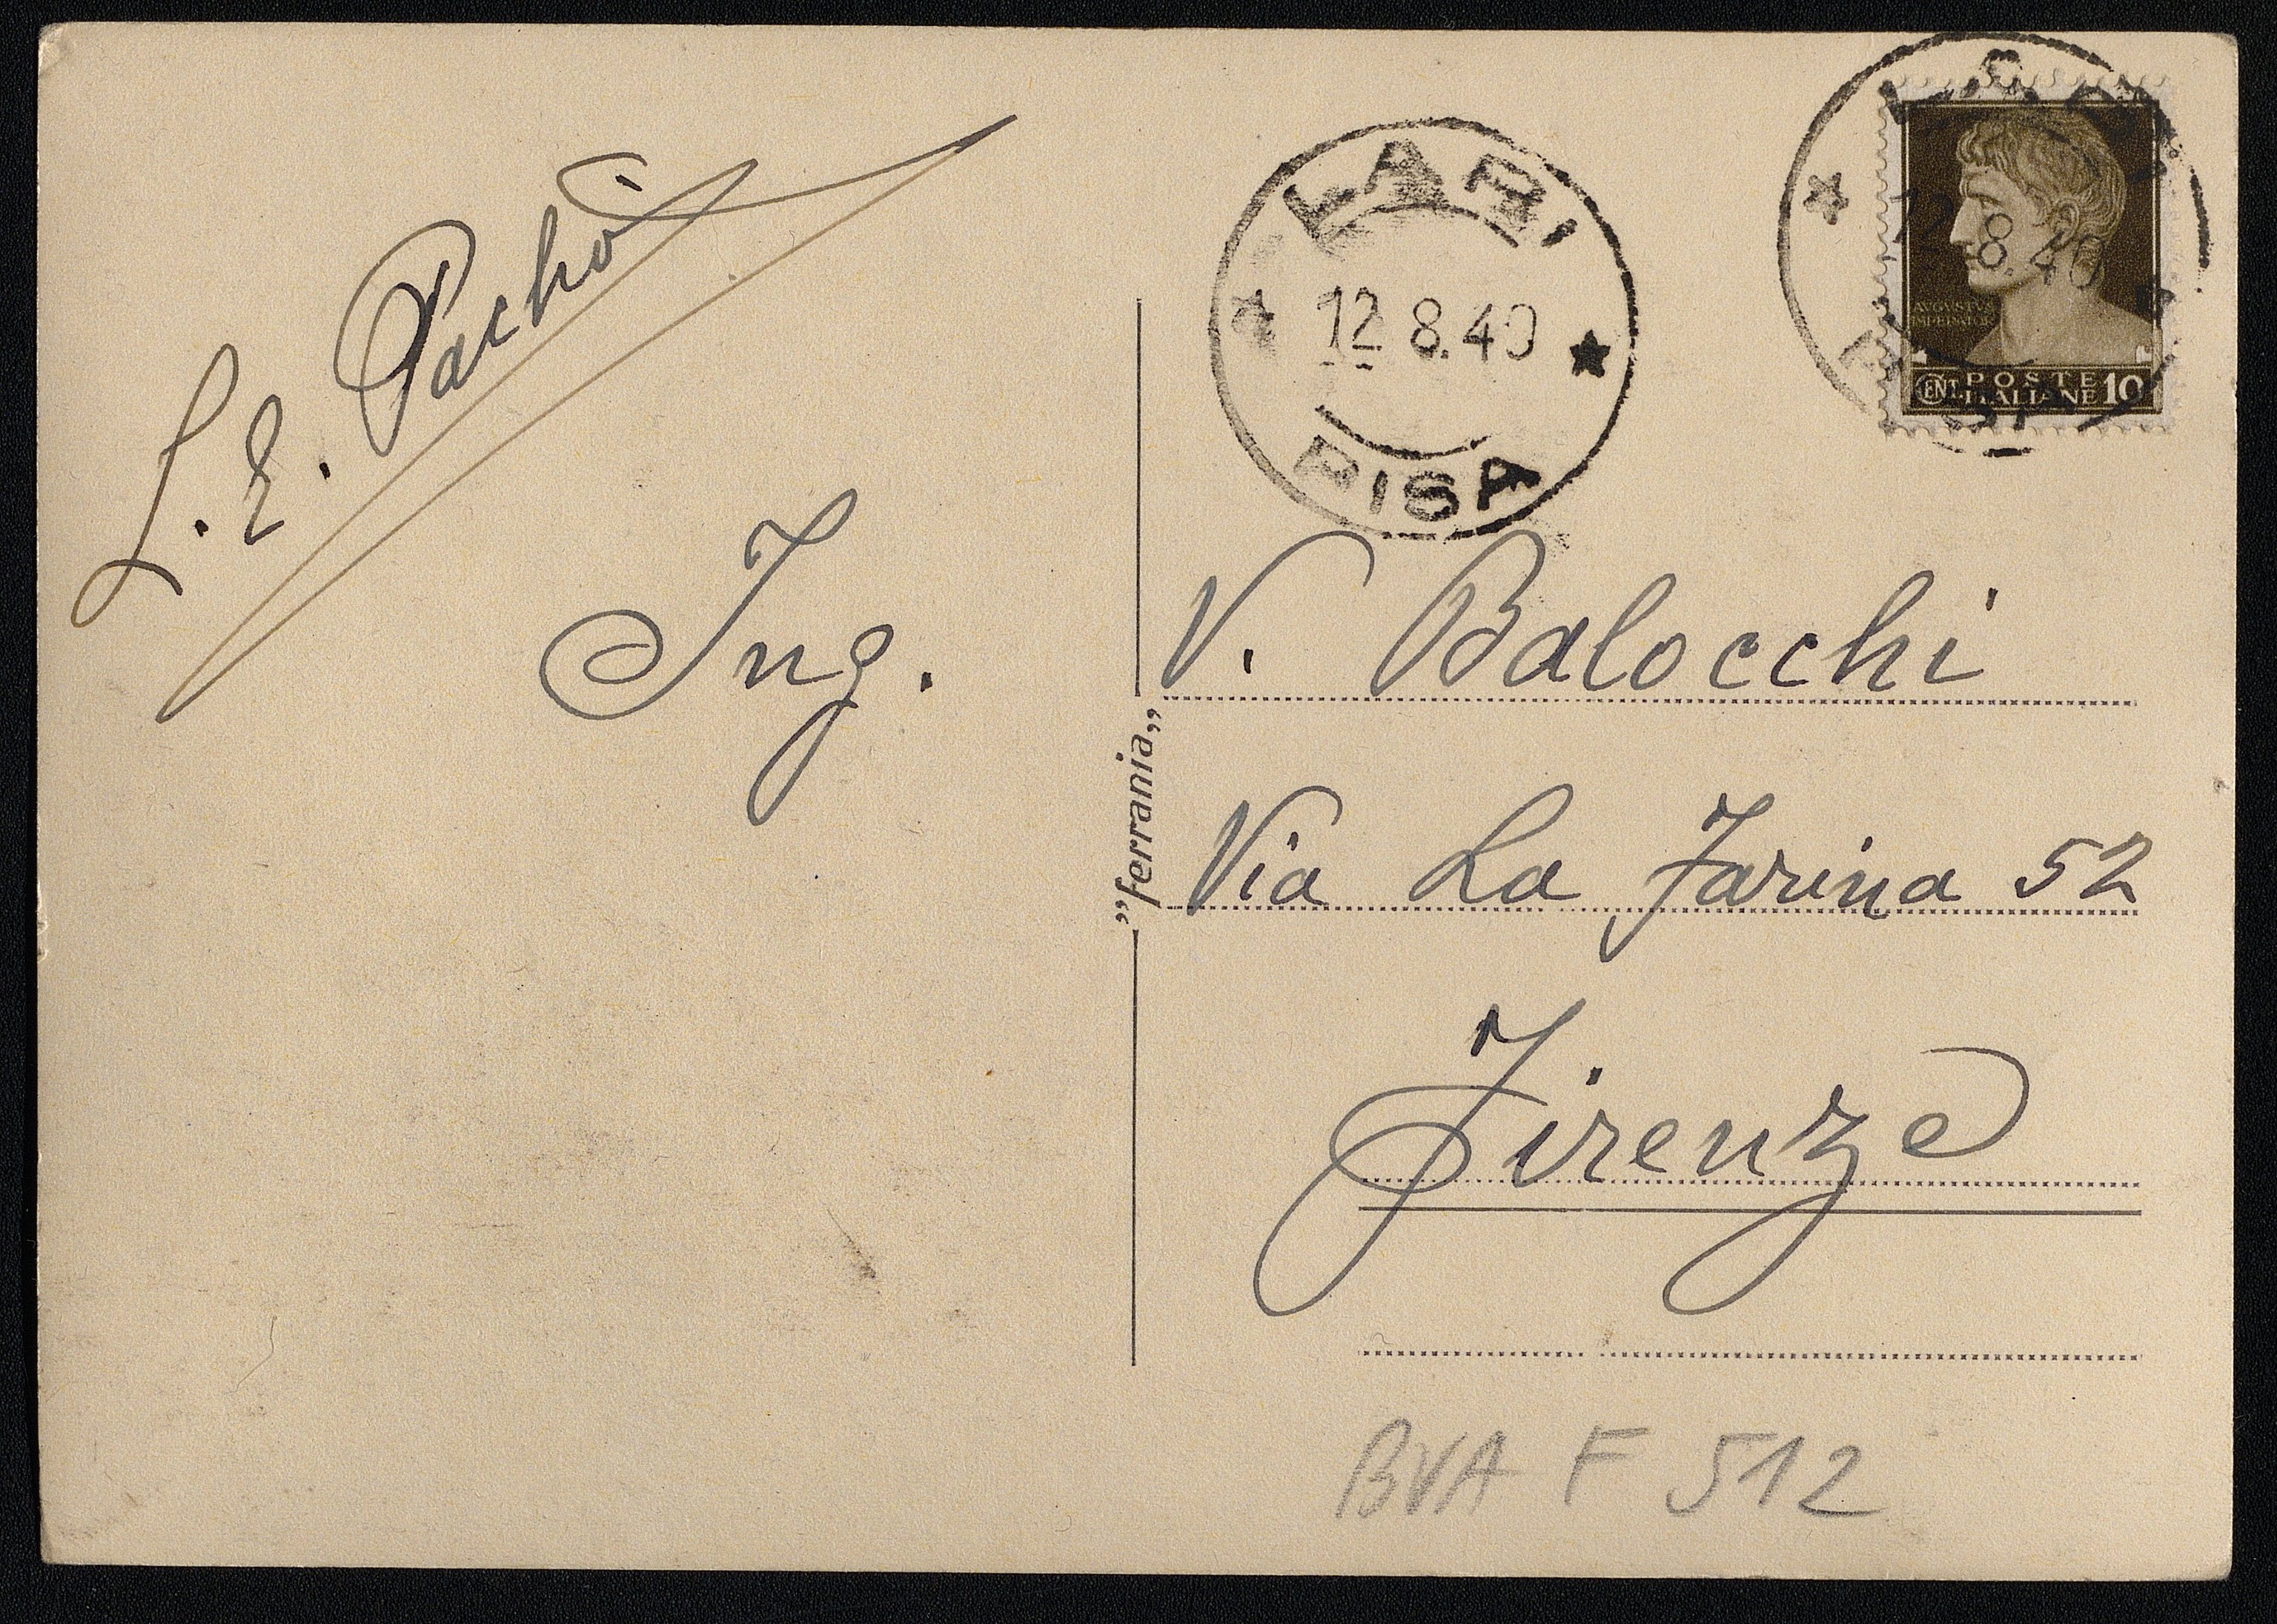 L. E. Pachò
LARI
12 8.40
PISA
12 8.40
AVGVSTVS
IMPERATOR
CENT. POSTE
ITALIANE 10
Ing. V. Balocchi
„ferrania„
Via La Farina 52
Firenze
BVA F 512